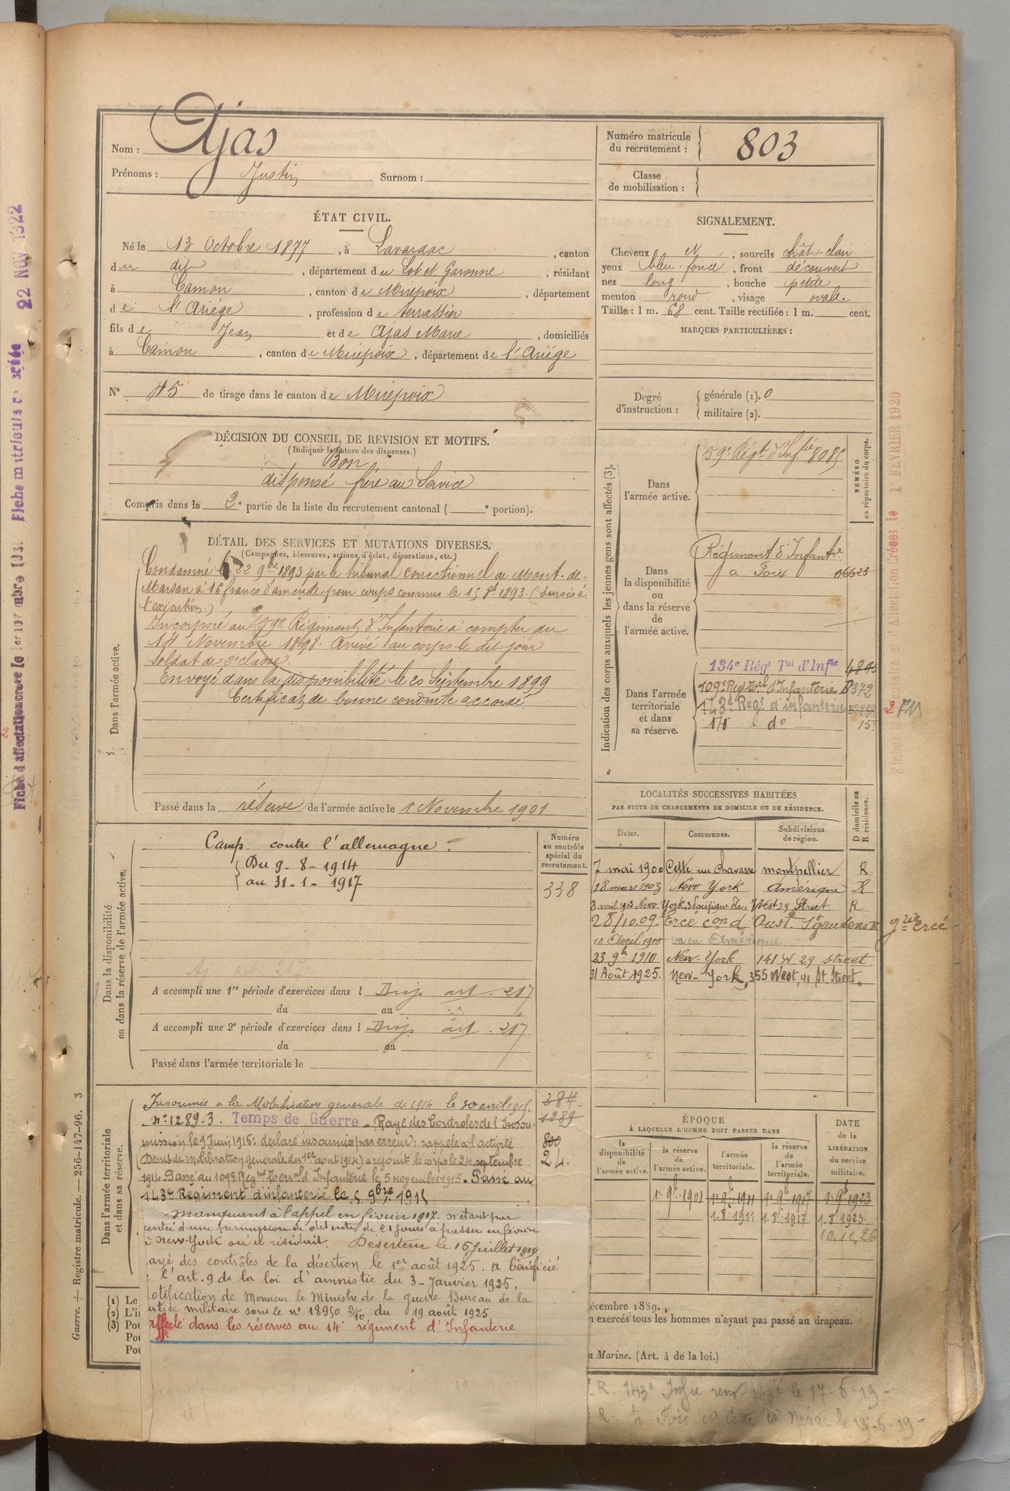 Nom : Ajas
Prénoms : Justin Surnom :
Numéro matricule du recrutement : 803
Classe de mobilisation :
ÉTAT CIVIL.
Né le 13 Octobre 1877, à Lavardac, canton
du dit, département du Lot et Garonne, résidant
à Camon, canton de Mirepoix, département
de l'Ariége, profession de terrassier
fils de Jean et de Ajas Marie, domiciliés
à Camon, canton de Mirepoix, département de l'Ariége
N° 45 de tirage dans le canton de Mirepoix
SIGNALEMENT.
Cheveux N, sourcils chât. clair
yeux bleu-foncé, front découvert
nez long, bouche petite
menton rond, visage ovale
Taille : 1 m. 68 cent. Taille rectifiée : 1 m. cent.
MARQUES PARTICULIÈRES :
Degré d'instruction : générale (1). 0
militaire (2).
DÉCISION DU CONSEIL DE REVISION ET MOTIFS.
(Indiquer la nature des dispenses.)
Bon
dispensé frère au Service
Compris dans la 2e partie de la liste du recrutement cantonal ( e portion).
DÉTAIL DES SERVICES ET MUTATIONS DIVERSES.
(Campagnes, blessures, actions d'éclat, décorations, etc.)
Dans l'armée active.
Condamné le 22 9bre 1893 par le tribunal correctionnel de Mont-de-
Marsan à 16 francs d'amende pour coups commis le 15 8bre 1893. (Sursis à
l'exécution.)
Incorporé au 59e Régiment d'Infanterie à compter du
14 Novembre 1898. Arrivé au corps le dit jour
soldat de 2e classe.
Envoyé dans la disponibilité le 20 Septembre 1899
Certificat de bonne conduite accordé.
Passé dans la réserve de l'armée active le 1 Novembre 1901
Indication des corps auxquels les jeunes gens sont affectés (3).
NUMÉRO au répertoire du corps.
Dans l'armée active.
59e Régt d'Infie 8085
Dans la disponibilité ou dans la réserve de l'armée active.
Régiment d'Infantie
à Foix 06623
Dans l'armée territoriale et dans sa réserve.
134e Régt Tal d'Infie
109e Régt Tal d'Infanterie
143e Régt d'infanterie
do 15
LOCALITÉS SUCCESSIVES HABITÉES
PAR SUITE DE CHANGEMENTS DE DOMICILE OU DE RÉSIDENCE.
Dates. Communes. Subdivisions de région. D domicile ou R résidence.
7 mai 1900 Cette rue Chavasse montpellier R
18 mars 1903 New York Amérique R
New York, 3 Pacifique Place West 29 Street R
28/10.09. Ercé cond Oust. St gaudens
10 Avril 1910 va en Amérique
23 9bre 1910. New-York 141 W 29 street
31 Août 1925. New-York, 355 West, 41 st Street.
Dans la disponibilité ou dans la réserve de l'armée active.
Camp. contre l'allemagne :
Du 9-8-1914
au 31-1-1917
Numéro au contrôle spécial du recrutement.
338
A accompli une 1re période d'exercices dans l Disp art. 217
du au
A accompli une 2e période d'exercices dans l Disp art. 217
du au
Passé dans l'armée territoriale le
Dans l'armée territoriale et dans sa réserve.
Insoumis à la Mobilisation generale de 1914 le 20 avril 1915.
n° 1289.3. Temps de Guerre. Rayé des Controles de l'Insou-
mission le 9 Juin 1916: déclaré insoumis par erreur; rappelé à l'activité
(Decret de mobilisation Generale du 1er aout 1914) a rejoint le corps le 24 septembre
1914. Passé au 109e Régt Terral d'Infanterie le 5 novembre 1915. Passé au
143e Régiment d'infanterie le 5 9bre 1915
Manquant à l'appel en février 1917. n'étant pas
rentré d'une permission de détente de 21 jours à passer en février
à New-York où il résidait. Déserteur le 15 juillet 1919
ayé des contrôles de la désertion le 1er août 1925. a bénéficié
l'art. 9 de la loi d'amnistie du 3-Janvier 1925.
otification de Monsieur le Ministre de la guerre Bureau de la
ustice militaire sous le n° 18950 2/10 du 19 août 1925
affecté dans les réserves au 14e régiment d'Infanterie
284
1289
800
24.
ÉPOQUE
À LAQUELLE L'HOMME DOIT PASSER DANS
la disponibilité de l'armée active. la réserve de l'armée active. l'armée territoriale. la réserve de l'armée territoriale. DATE de la LIBÉRATION du service militaire.
1.9bre 1901 1.9bre 1911 1.9bre 1917 1.9bre 1923
1.8.1911 1.8.1917 1.8.1923
(1) Le
(2) L'i
(3) Pou
Pou
Pou
écembre 1889.
n exercés tous les hommes n'ayant pas passé au drapeau.
a Marine. (Art. 4 de la loi.)
Guerre. — Registre matricule. — 256-147-96. 3
22 NOV 1922